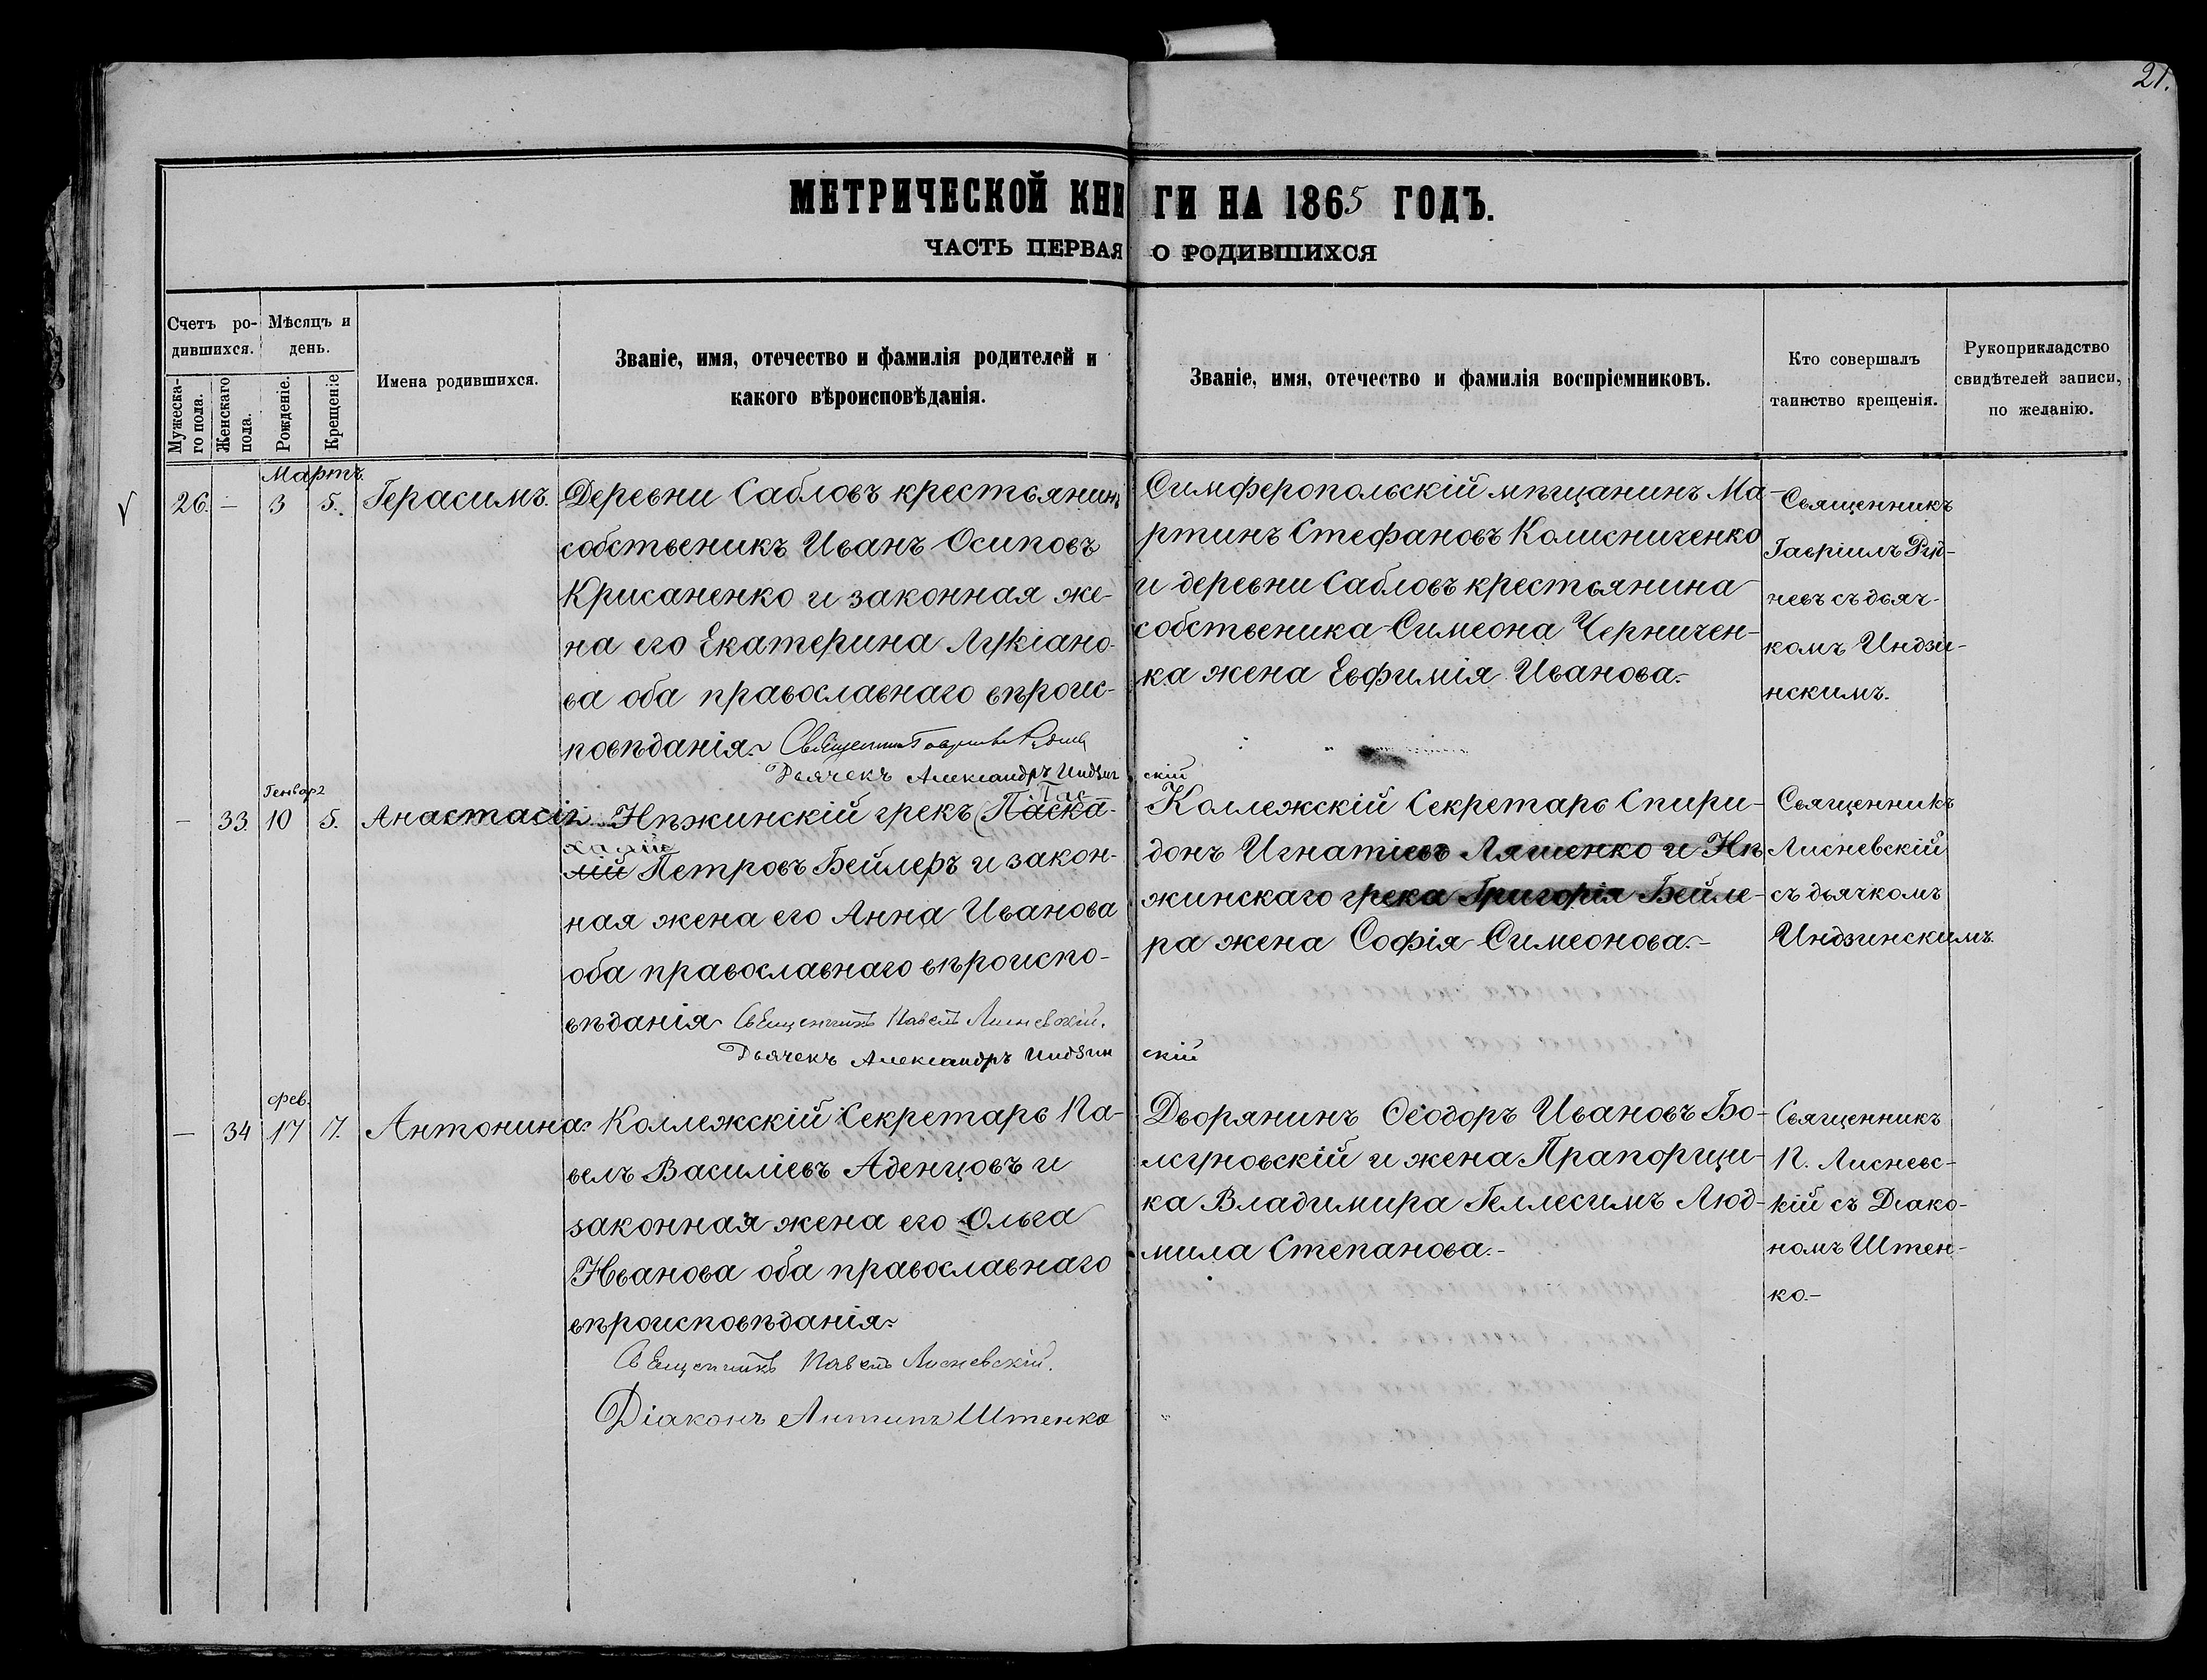 21.
МЕТРИЧЕСКОЙ КНИГИ НА 1865 ГОДЪ.
ЧАСТЬ ПЕРВАЯ О РОДИВШИХСЯ
Счетъ ро-
дившихся.
Мужеска-
го пола.
Женскаго
пола.
Мѣсяцъ и
день.
Рожденіе.
Крещеніе
Имена родившихся.
Званіе, имя, отечество и фамилія родителей и
какого вѣроисповѣданія.
Званіе, имя, отечество и фамилія воспріемниковъ.
Кто совершалъ
таинство крещенія.
Рукоприкладство
свидѣтелей записи,
по желанію.
Мартъ
26. – 3 5. Герасимъ.
Деревни Сабловъ крестьянинъ
собственикъ Иванъ Осиповъ
Крисаненко и законная же-
на его Екатерина Лукіано-
ва оба православнаго вѣроис-
повѣданія
Дьячекъ Александръ Индзинскій
Симферопольскій мѣщанинъ Ма-
ртинъ Стефановъ Колисниченко
и деревни Сабловъ крестьянина
собственика Симеона Черничен-
ка жена Евфимія Иванова.-
Священникъ
Гавріилъ Руд-
невъ съ дьяч-
комъ Индзи-
нскимъ.
Генвар
– 33. 10 5. Анастасія
Нѣжинскій грекъ (Паска-
лій Петровъ Бейлеръ и закон-
ная жена его Анна Иванова
оба православнаго вѣроиспо-
вѣданія Священникъ Павелъ Лисневскій.
Дьячекъ Александръ Индзинскій
Коллежскій Секретарь Спири-
донъ Игнатіевъ Ляшенко и Нѣ
жинскаго грека Григорія Бейле-
ра жена Софія Симеонова.-
Священникъ
Лисневскій
съ дьячкомъ
Индзинскимъ.
фев.
– 34 17 7. Антонина
Коллежскій Секретарь Па-
велъ Василіевъ Аденцовъ и
законная жена его Ольга
Ивanова оба православнаго
вѣроисповѣданія
Священникъ Павелъ Лисневскій.
Діаконъ Антипъ Штенко
Дворянинъ Ѳеодоръ Ивановъ Бо-
лсуновскій и жена Прапорщи-
ка Владимира Геллесимъ Люд-
мила Степанова.-
Священникъ
П. Лисневс-
кій съ Діако-
номъ Штен-
ко.-